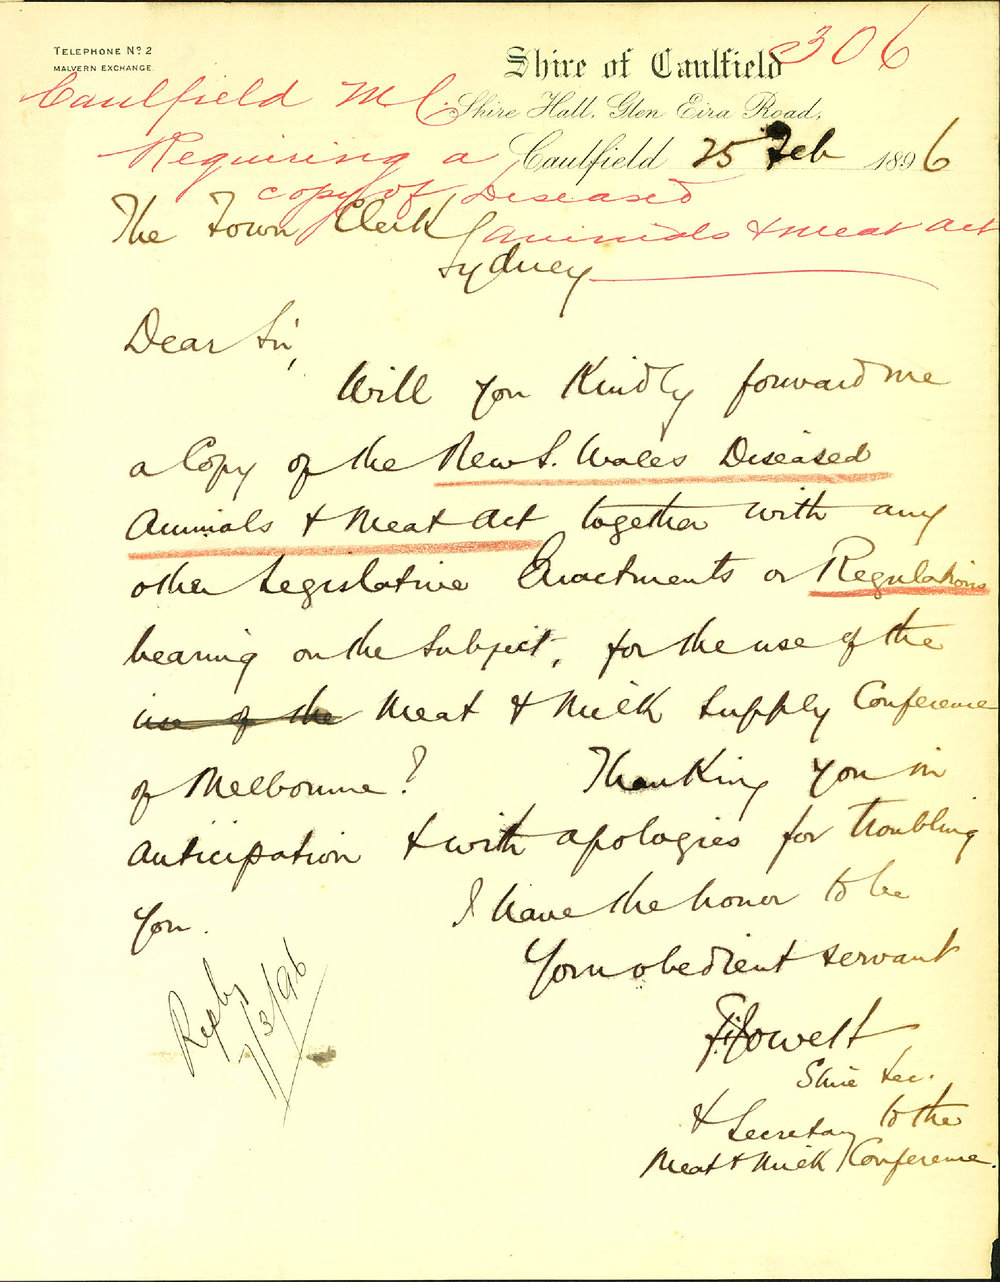 TELEPHONE Nº 2
MALVERN EXCHANGE.
Shire of Caulfield
306
Caulfield M C.
Shire Hall, Glen Eira Road,
Requiring a
Caulfield 25 Feb 1896
copy of Diseased
The Town Clerk
Animals & Meat Act
Sydney
Dear Sir,
Will you Kindly forward me
a Copy of the New S. Wales Diseased
Animals & Meat Act together with any
other Legislative Enactments or Regulations
bearing on the subject, for the use of the
use of the Meat & Milk Supply Conference
of Melbourne? Thanking you in
anticipation & with apologies for troubling
you. I have the honor to be
Your obedient servant
Jowett
Shire Sec.
& Secretary to the
Meat & Milk Conference.
Reply
7/3/96